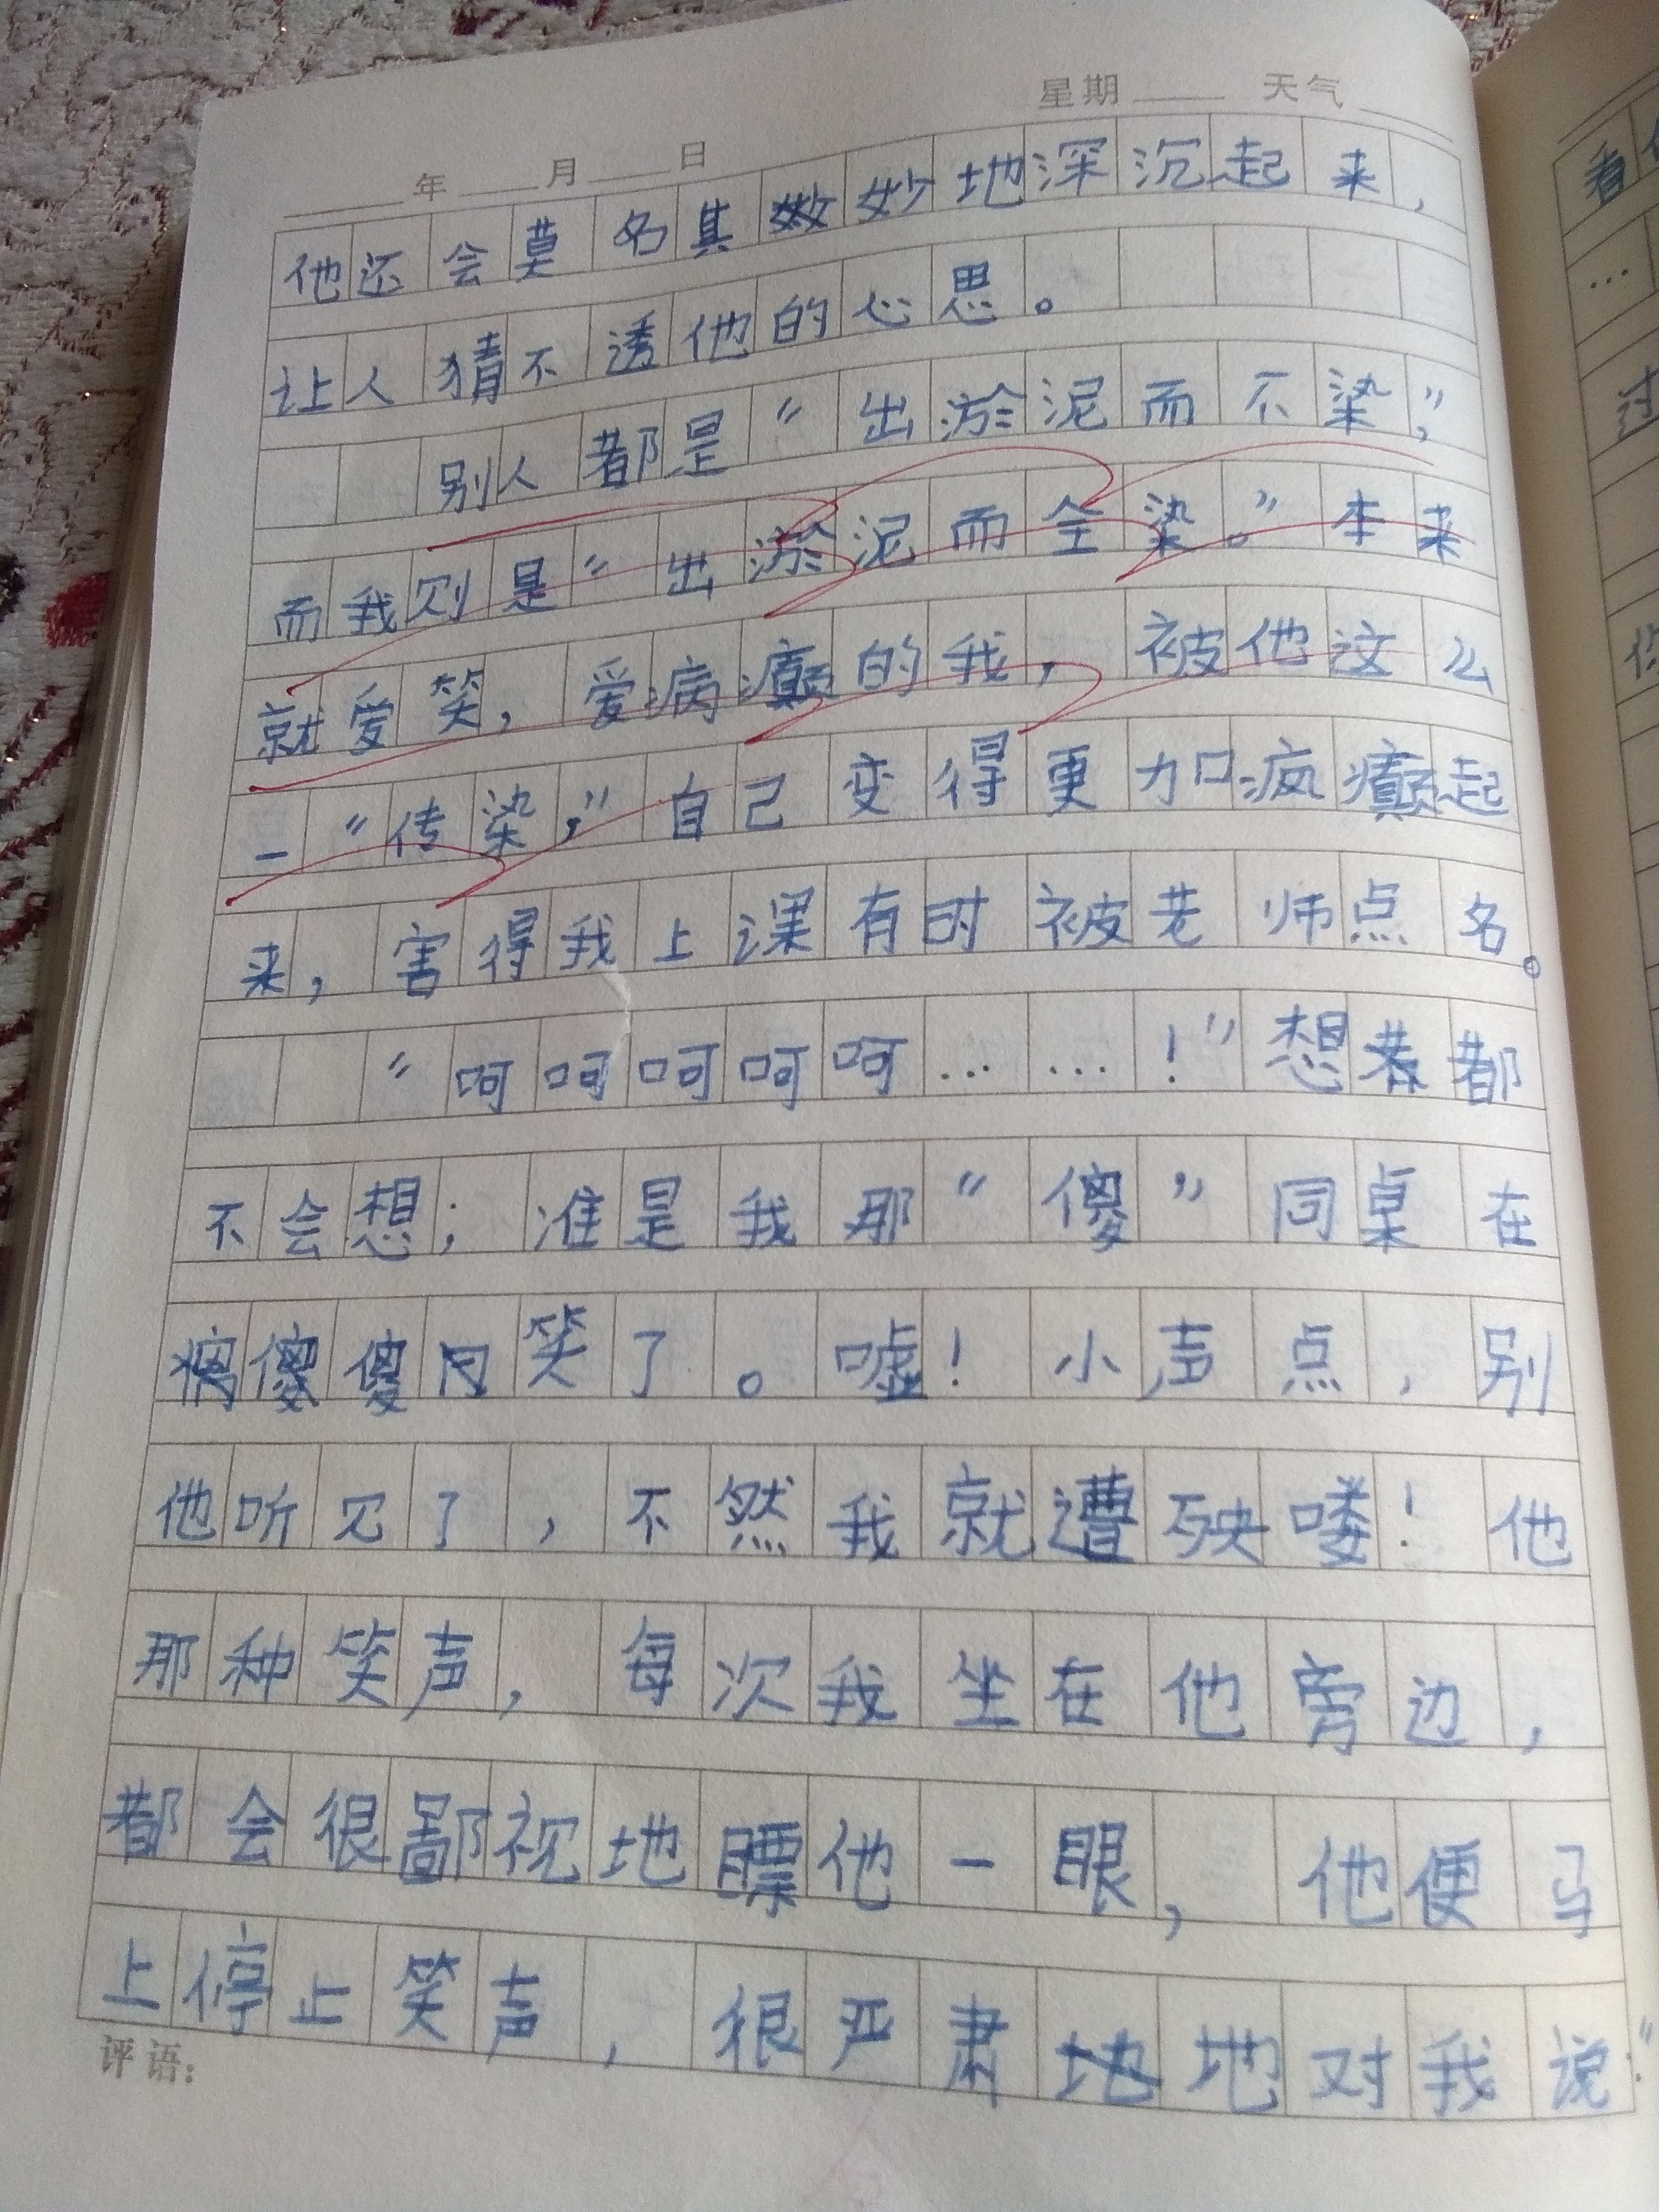 星期 天气
年 月 日
他还会莫名其妙地深沉起来，
让人猜不透他的心思。
别人都是“出淤泥而不染”，
而我则是“出淤泥而全染。”本来
就爱笑，爱病癫的我，被他这么
一“传染，”自己变得更加疯癫起
来，害得我上课有时被老师点名。
“呵呵呵呵呵……！”想都
不会想；准是我那“傻”同桌在
傻傻笑了。嘘！小声点，别
他听见了，不然我就遭殃喽！他
那种笑声，每次我坐在他旁边，
都会很鄙视地瞟他一眼，他便马
上停止笑声，很严肃地对我说：“
评语：
看
…
过
你